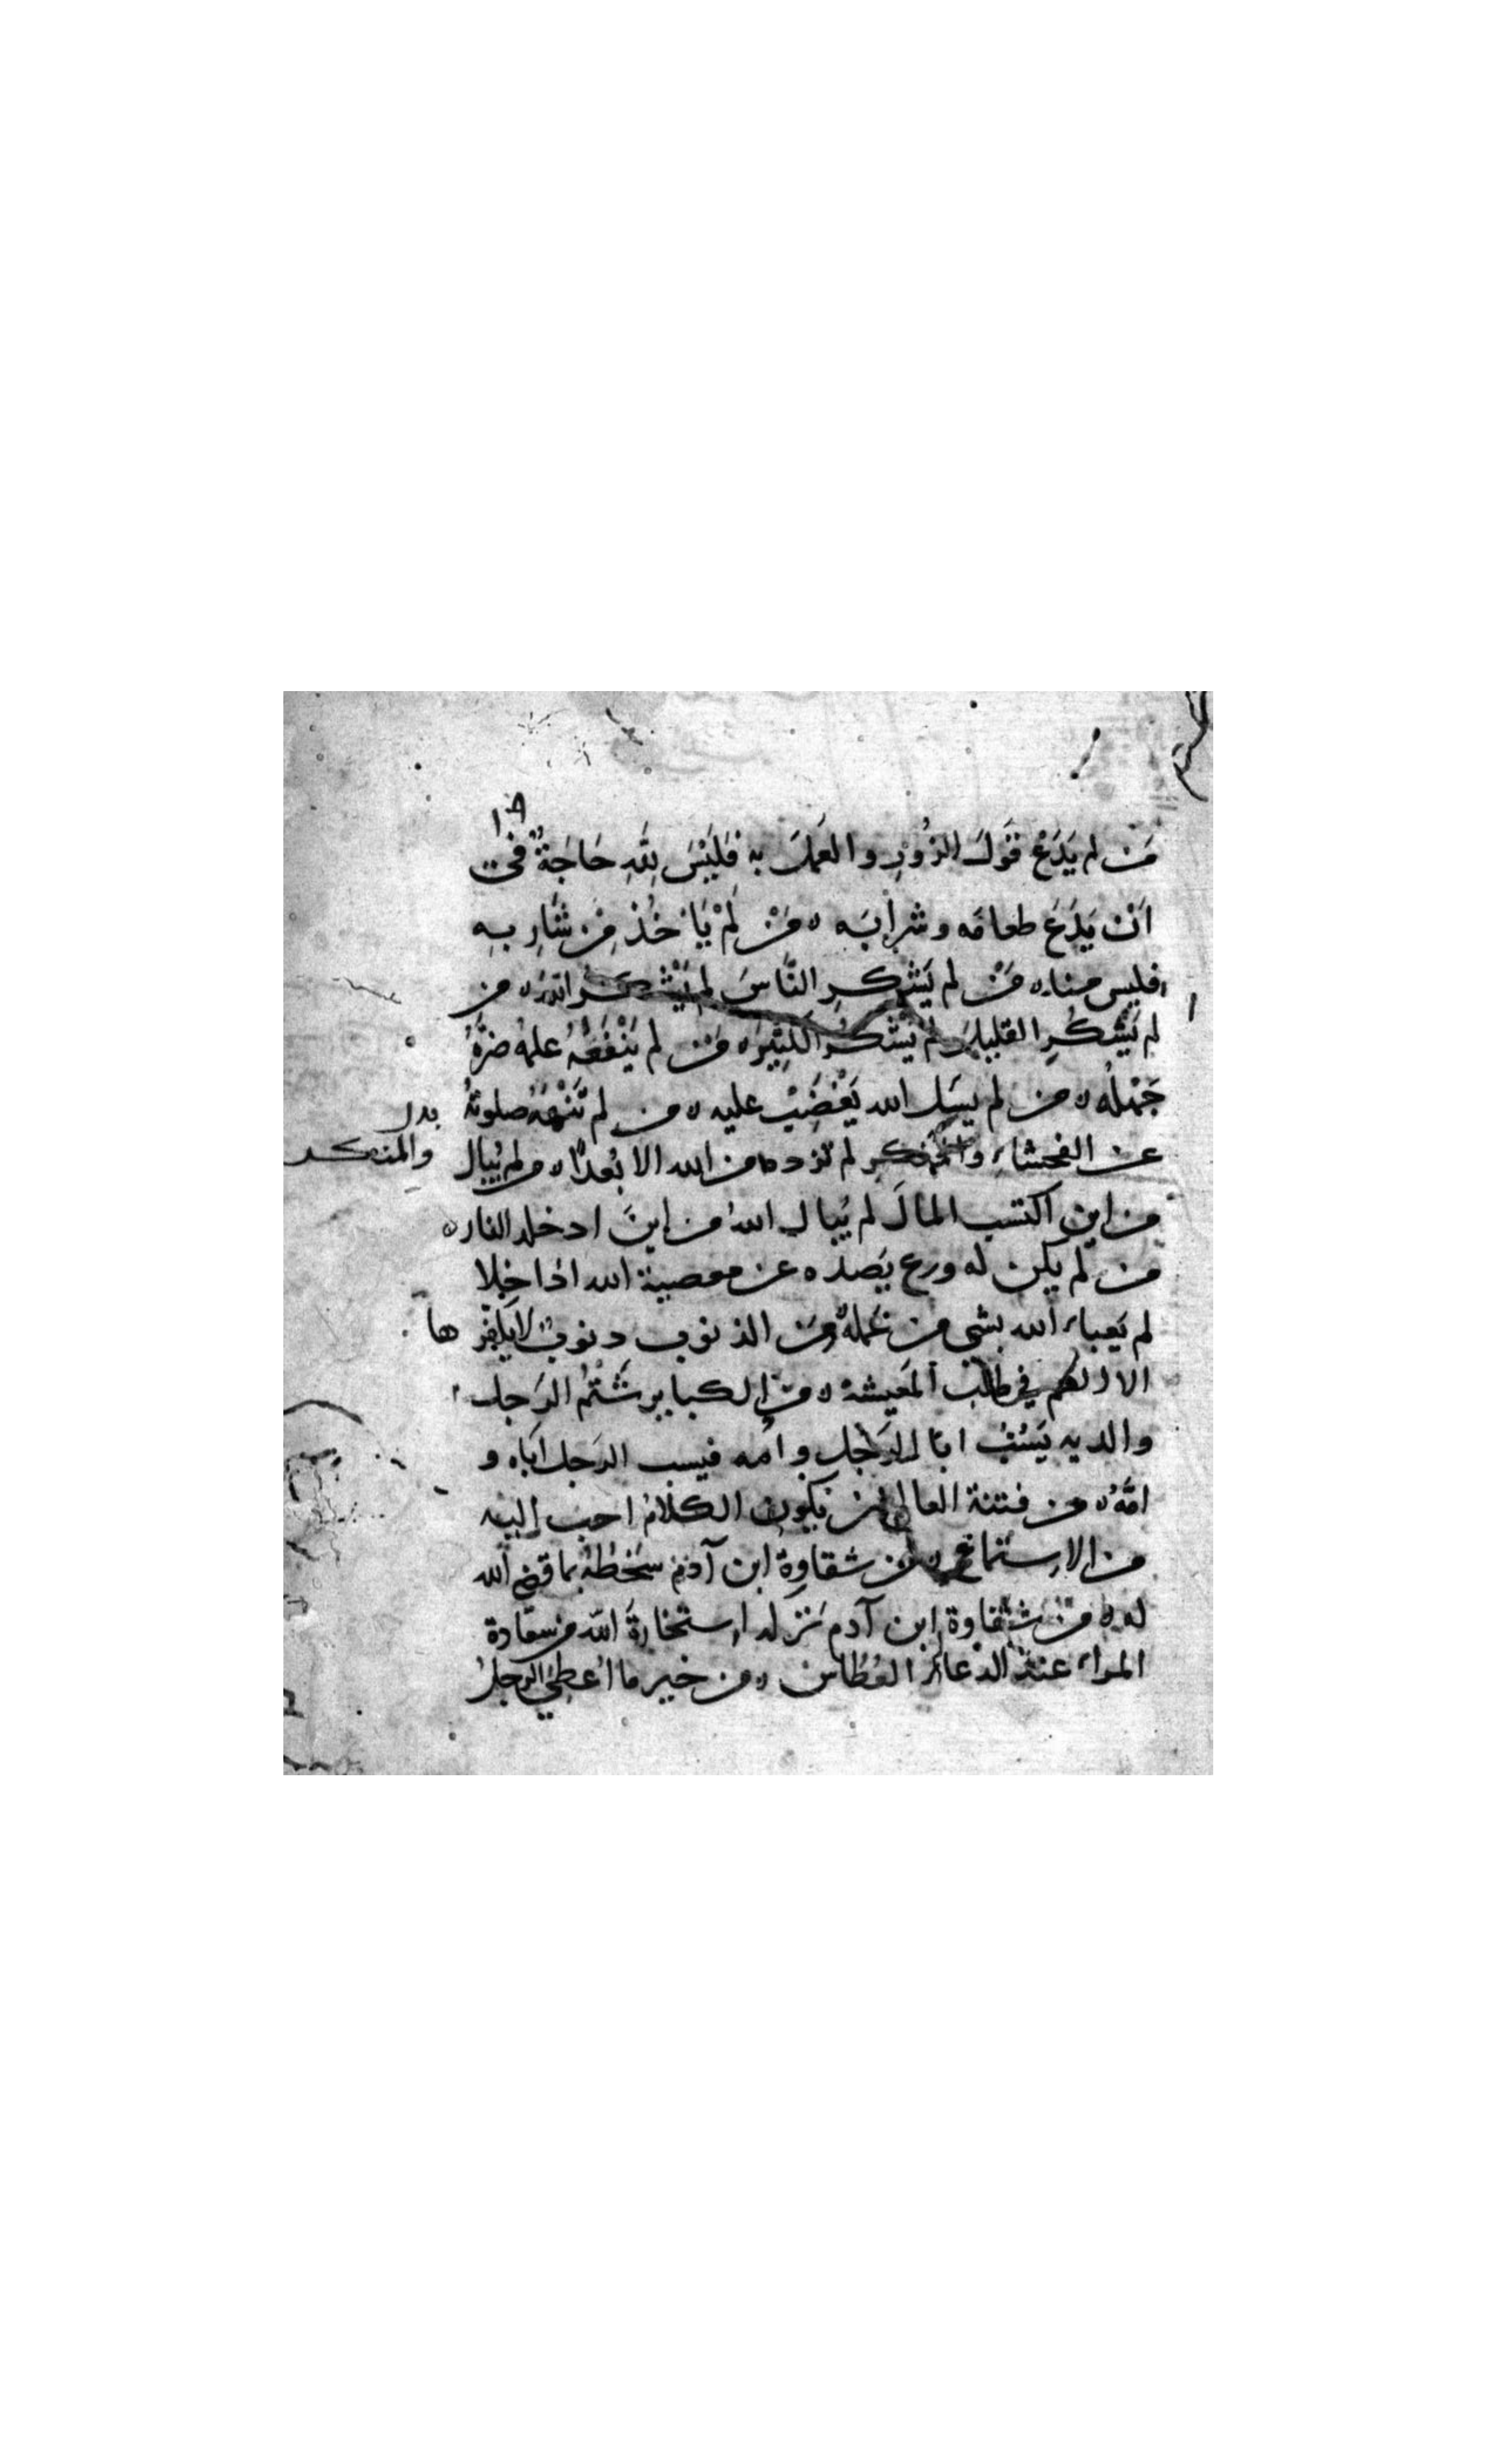 ١٩
مَن لم يَدَعْ قَوْلَ الزُورِ والعَمَلَ به فَلَيْسَ لِلَّهِ حَاجَةٌ في
اَنْ يَدَعَ طعامَه وشرابَه ه مَنْ لَمْ يَاخُذْ مِن شَارِبِهِ
فليس منا ه مَنْ لم يَشْكرِ النَّاسَ لم يَشْكرِ اللهَ ه من
لم يَشْكُرِ القليلَ لم يَشْكُرِ الكثِيرَ ه مَنْ لم يَنْفَعْهُ علمُه ضرَّهُ
جَهْلُه ه من لم يسَل الله يَغْضَبْ عليه ه من لم تَنْهَهُ صلوتُهُ
عن الفحشاءِ والمنكرِ لم تزده من الله الا بُعدًا ه من لم يُبالِ
بدل
والمنكر
من اين اكتسب المالَ لم يُبالِ اللهُ من اينَ ادخله النار ه
من لم يكن له ورع يَصده عن معصية الله اذا خلا
لم يَعباء الله بشى من عَمله ه مِنَ الذنوب ذنوبٌ لا يكفر ها
الا الهم في طلب المَعيشة ه منَ الكباير شَتْمُ الرَجل
والديه يَسُبُّ ابا الرَجل وامه فيسب الرَجل اَباه و
امَّهُ ه من فتنة العالم ان يكون الكلامُ احب اليه
من الاستماع ه من شقاوة ابن آدم سَخطُهُ بما قضى الله
له ه منْ شقاوة ابن آدم تركه استخارةَ اللهِ من سعادة
المراء عند الدعاء العُطَاس ه من خير ما اُعطِيَ الرجلُ